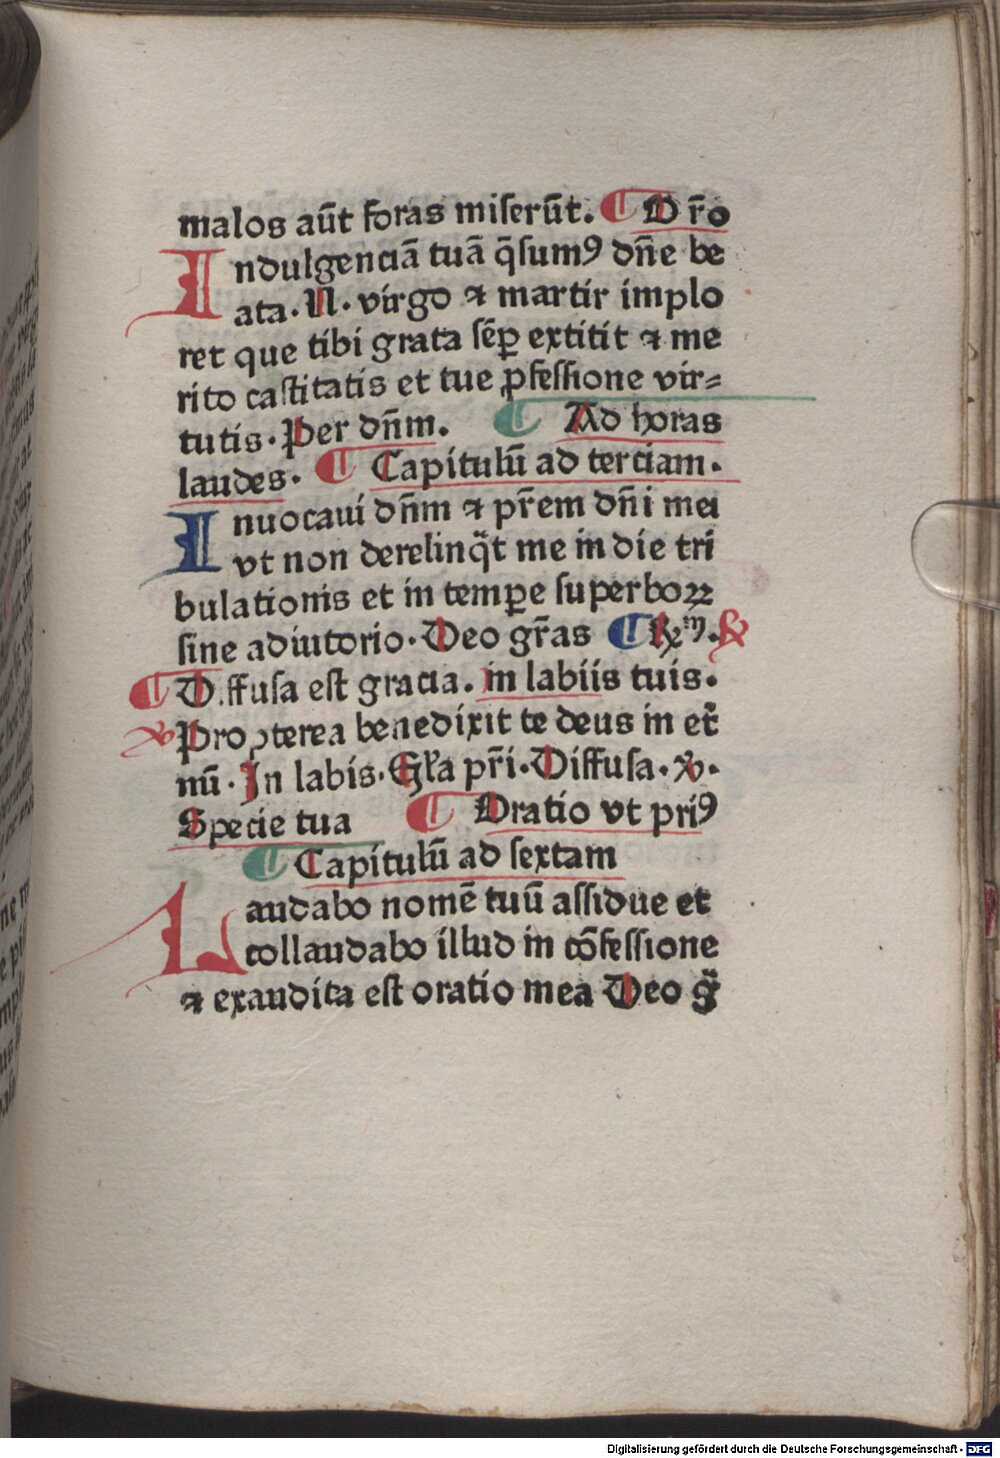 malos aūt foras miserūt. ¶ Or̄o
Indulgenciā tuā q̄sumꝰ dn̄e be
ata. N. virgo ⁊ martir implo
ret que tibi grata sēꝑ extitit ⁊ me
rito castitatis et tue ꝓfessione vir⸗
tutis. Per dn̄m. ¶ Ad horas
laudes. ¶ Capitulū ad terciam.
Inuocaui dn̄m ⁊ pr̄em dn̄i mei
vt non derelinq̄t me in die tri
bulationis et in temꝑe superboꝝ
sine adiutorio. Deo gr̄as ¶
¶ Diffusa est gracia. in labiis tuis.
℣ Propterea benedixit te deus in et̄
nū. In labis. Gl̄a pr̄i. Diffusa. ℣.
Specie tua ¶ Oratio vt priꝰ
¶ Capitulū ad sextam
Laudabo nomē tuū assidue et
collaudabo illud in cōfessione
⁊ exaudita est oratio mea Deo gr̄
Digitalisierung gefördert durch die Deutsche Forschungsgemeinschaft - DFG